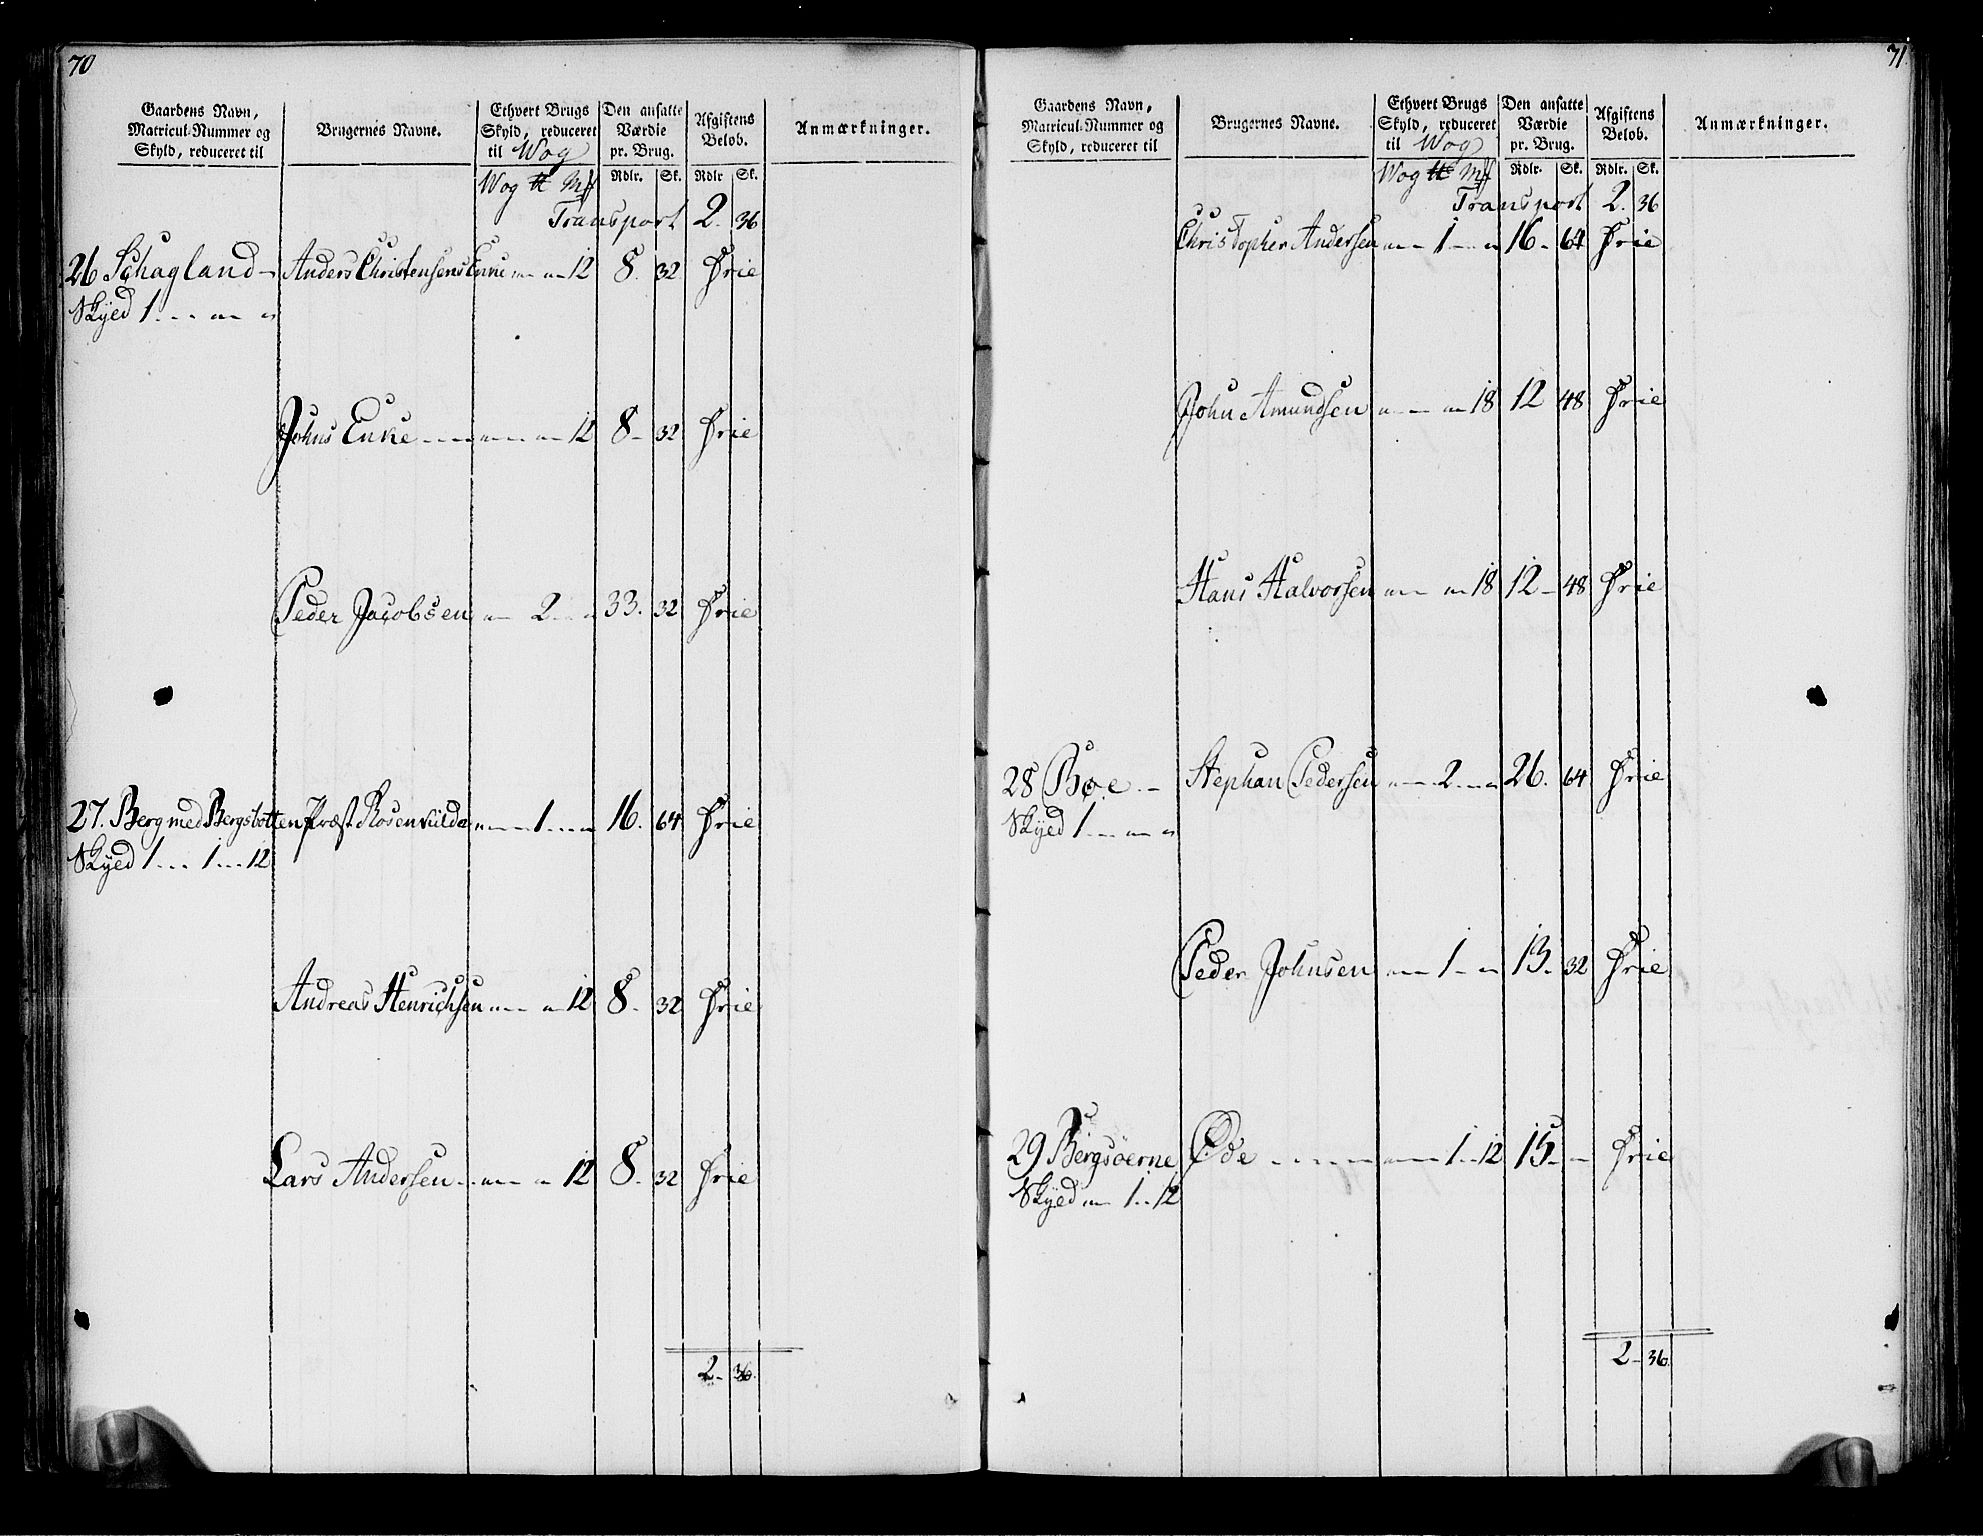 70
Gaardens Navn,
Matricul-Nummer og
Skyld, reduceret til
Brugernes Navne.
Ethvert Brugs
Skyld, reduceret
til Wog
Den ansatte
Værdie
pr. Brug.
Afgiftens
Beløb.
Anmærkninger.
Wog ℔ Mk Rdlr. Sk. Rdlr Sk.
Transport 2. 36
26 Schagland - Anders Christensens Enke - - 12 8. 32 Frie
Skyed 1 - - -
Johns Enke - - - 12 8 - 32 Frie
Peder Jacobsen - 2 - - 33. 32 Frie
27. Berg med Bergsbotten Præst Rosenkilde - - 1 - - 16. 64 Frie
Skyed 1 - - 1 - - 12
Andreas Henrichsen - - 12 8. 32 Frie
Lars Andersen - - - 12 8. 32 Frie
2 - 36.
71.
Gaardens Navn,
Matricul-Nummer og
Skyld, reduceret til
Brugernes Navne.
Ethvert Brugs
Skyld, reduceret
til Wog
Den ansatte
Værdie
pr. Brug.
Afgiftens
Beløb.
Anmærkninger.
Wog ℔ Mk Rdlr. Sk. Rdlr. Sk.
Transport 2. 36
Christopher Andersen - - 1 - - 16 - 64 Frie
John Amundsen - - - 18 12 48 Frie
Hans Halvorsen - - 18 12 - 48 Frie
28 Boe - Stephan Pedersen - - 2 - - 26. 64 Frie
Skyed 1 - - -
Peder Johnsen - - 1 - - 13. 32 Frie
29 Bergsöerne Øde - - - - - 1 - 12 15 - - Frie
Skyed - 1 - 12
2 - 36.